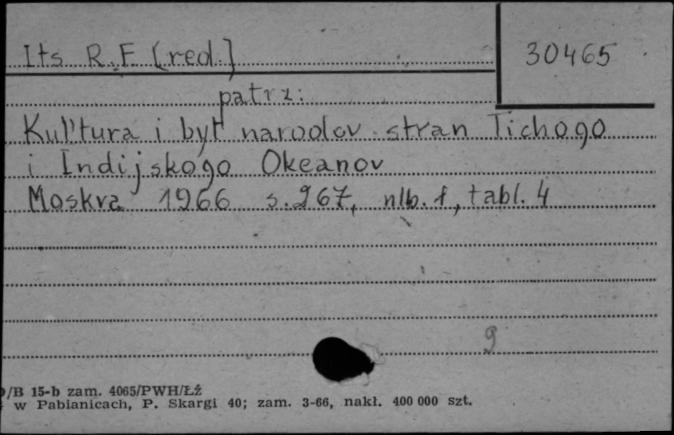 Its R.F. [red.] 30465
patrz:
Kul'tura i byt narodov stran Tichogo
i Indijskogo Okeanov
Moskva 1966 s. 267, nlb. 1, tabl. 4
9
/B 15-b zam. 4065/PWH/ŁŹ
w Pabianicach, P. Skargi 40; zam. 3-66, nakł. 400 000 szt.